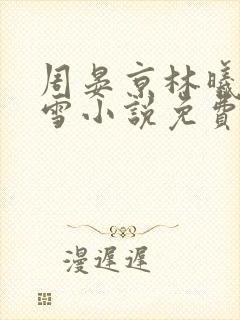 周晏京林曦
雪小說免費
漫遲遲